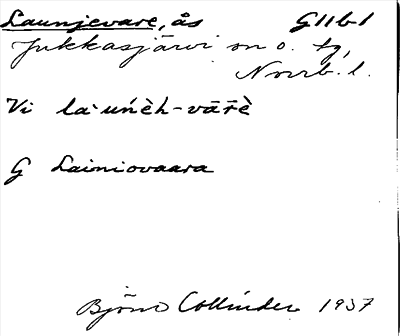 Launjevare, ås G11b1
Jukkasjärvi sn o. tg,
Norrb. l.
Vi la·uńèh-vāřè
G Lainiovaara
Björn Collinder 1937